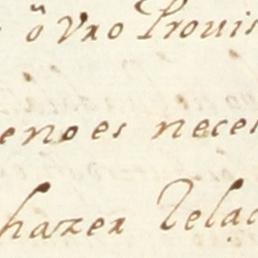 õ vro Prouis
enoes neces
hazer Relac